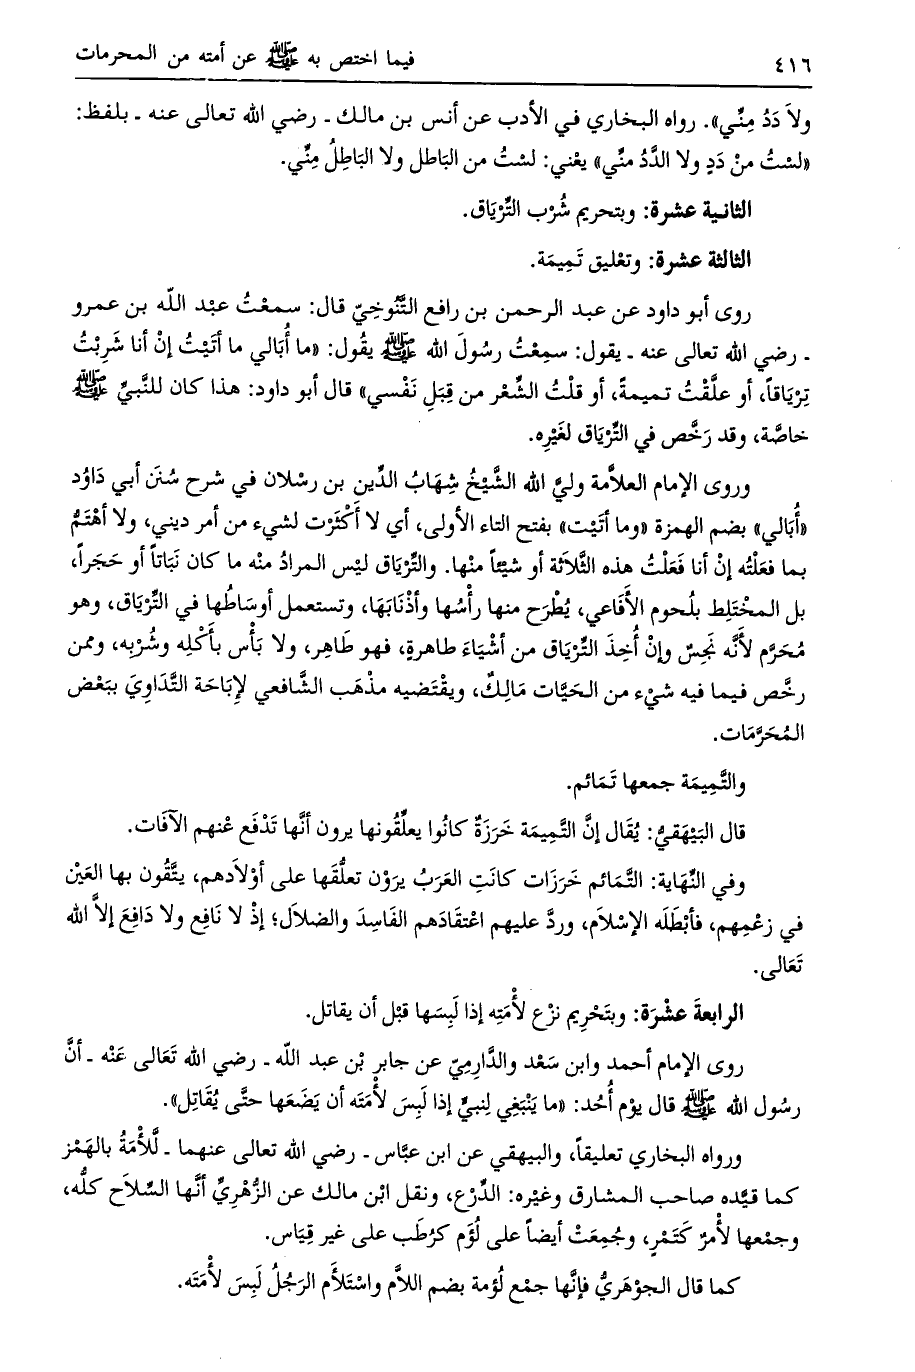 ٤١٦ فيما اختص به ﷺ عن أمته من المحرمات
ولاَ دَدُ مِنِّي». رواه البخاري في الأدب عن أنس بن مالك ـ رضي الله تعالى عنه ـ بلفظ:
«لسْتُ منْ دَدٍ ولا الدَّدُ منِّي» يعْني: لسْتُ من البَاطل ولا البَاطِلُ مِنِّي.
الثانية عشرة: وبتحريم شُرْب التِّرْيَاق.
الثالثة عشرة: وتعْليق تَمِيمَة.
روى أبو داود عن عبد الرحمن بن رافع التَّنُوخِيّ قال: سمعْتُ عبْد اللّه بن عمرو
ـ رضي الله تعالى عنه ـ يقول: سمِعْتُ رسُولَ الله ﷺ يقُول: «ما أُبَالي ما أتَيْتُ إنْ أنا شَرِبْتُ
تِرْيَاقاً، أو علَّقْتُ تميمةً، أو قلْتُ الشِّعْر من قِبَلِ نَفْسي» قال أبو داود: هذا كان للنَّبيِّ ﷺ
خاصَّة، وقد رَخَّص في التِّرْيَاق لغَيْرِه.
وروى الإمام العلاَّمة وليُّ الله الشَّيْخُ شِهَابُ الدِّين بن رسْلان في شرح سُنَن أبي دَاوُد
«أُبَالي» بضم الهمزة «وما أتَيْت» بفتح التاء الأولى، أي لا أَكْثَرْت لشيء من أمر ديني، ولا أهْتَمُّ
بما فعَلْتُه إنْ أنا فَعَلْتُ هذه الثَّلاَثَة أو شيْئاً منْها. والتِّرْيَاق ليْس المرادُ منْه ما كان نَبَاتاً أو حَجَراً،
بل المخْتَلِط بلُحوم الأَفَاعي، يُطْرَح منها رأْسُها وأذْنَابَهَا، وتستعمل أوسَاطُها في التِّرْيَاق، وهو
مُحَرَّم لأَنَّه نَجِسٌ وإنْ أُخِذَ التِّرْيَاق من أشْيَاءَ طاهرةٍ، فهو طَاهِر، ولا بَأْس بأَكْلِه وشُرْبِه، وممن
رخَّص فيما فيه شيْء من الحَيَّات مَالِكٌ، ويقْتَضيه مذْهَب الشَّافعي لإبَاحَة التَّدَاوِيَ ببَعْض
المُحَرَّمَات.
والتَّمِيمَة جمعها تَمَائم.
قال البَيْهَقيُّ: يُقَال إنَّ التَّمِيمَة خَرَزَةٌ كانُوا يعلِّقُونها يرون أنَّها تَدْفَع عنْهم الآفَات.
وفي النِّهَاية: التَّمَائم خَرَزَات كانَتِ العَرَبُ يرَوْن تعلُّقَها على أوْلاَدهم، يتَّقُون بها العَيْن
في زعْمِهم، فأبْطَلَه الإسْلاَم، وردَّ عليهم اعْتقَادَهم الفَاسِدَ والضلاَل؛ إذْ لا نَافِع ولا دَافِعَ إلاَّ الله
تَعَالى.
الرابعةَ عشْرَة: وبتَحْرِيم نزْع لأْمَتِه إذا لَبِسَها قبْل أن يقاتل.
روى الإمام أحمد وابن سَعْد والدَّارِميّ عن جابر بْن عبد اللّه ـ رضي الله تَعَالى عَنْه ـ أنَّ
رسُول الله ﷺ قال يوْم أُحُد: «ما يَنْبَغِي لِنبيٍّ إذا لَبِسَ لأْمَتَه أن يَضَعَها حتَّى يُقَاتِل».
ورواه البخاري تعليقاً، والبيهقي عن ابن عبَّاس ـ رضي الله تعالى عنهما ـ لَّلأْمَةُ بالهَمْز
كما قيَّده صاحب المشارق وغيْره: الدِّرْع، ونقل ابْن مالك عن الزُّهْريِّ أنَّها السِّلاَح كلُّه،
وجمْعها لأْمرٌ كَتَمْرٍ، وجُمِعَتْ أيضاً على لُؤَم كرُطَب على غير قِيَاس.
كما قال الجوْهَريُّ فإنَّها جمْع لُؤمة بضم اللاَّم واسْتَلأَم الرَجُلُ لَبِسَ لأْمَتَه.